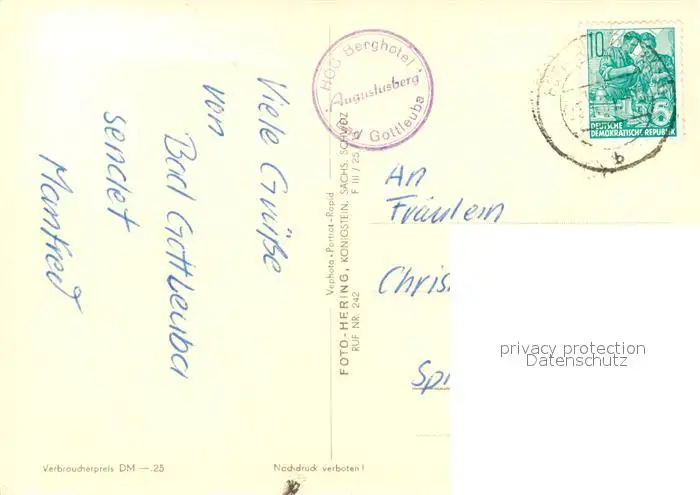 Viele Grüße
von
Bad Gottleuba
sendet
Manfred
HOG Berghotel
Augustusberg
Bad Gottleuba
10
5
DEUTSCHE
DEMOKRATISCHE REPUBLIK
b
An
Fräulein
Chris
Sp
privacy protection
Datenschutz
Vephota • Portrait-Rapid
FOTO-HERING, KÖNIGSTEIN, SÄCHS. SCHWEIZ
RUF NR. 242 F III / 25
Verbraucherpreis DM —.25
Nachdruck verboten!